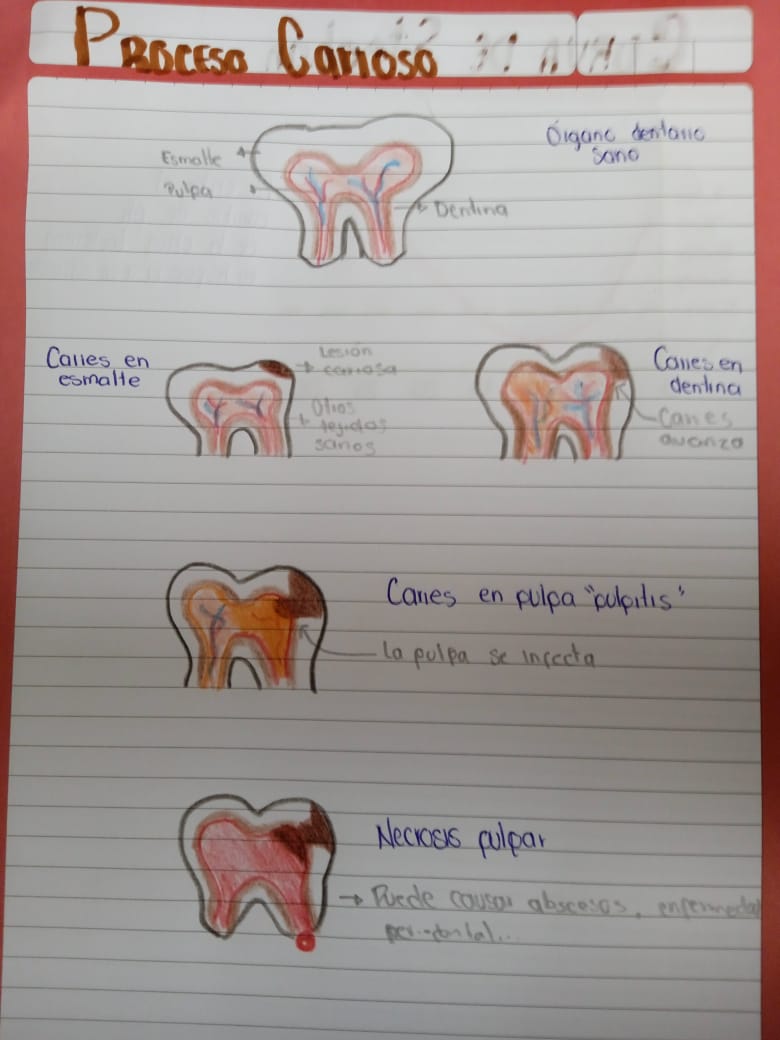 Proceso Carioso
Órgano dentario
sano
Esmalte
Pulpa
Dentina
Caries en
esmalte
Lesión
cariosa
Otros
tejidos
sanos
Caries en
dentina
Caries
avanza
Caries en pulpa "pulpitis"
La pulpa se infecta
Necrosis pulpar
Puede causar abscesos, enfermedad
periodontal...